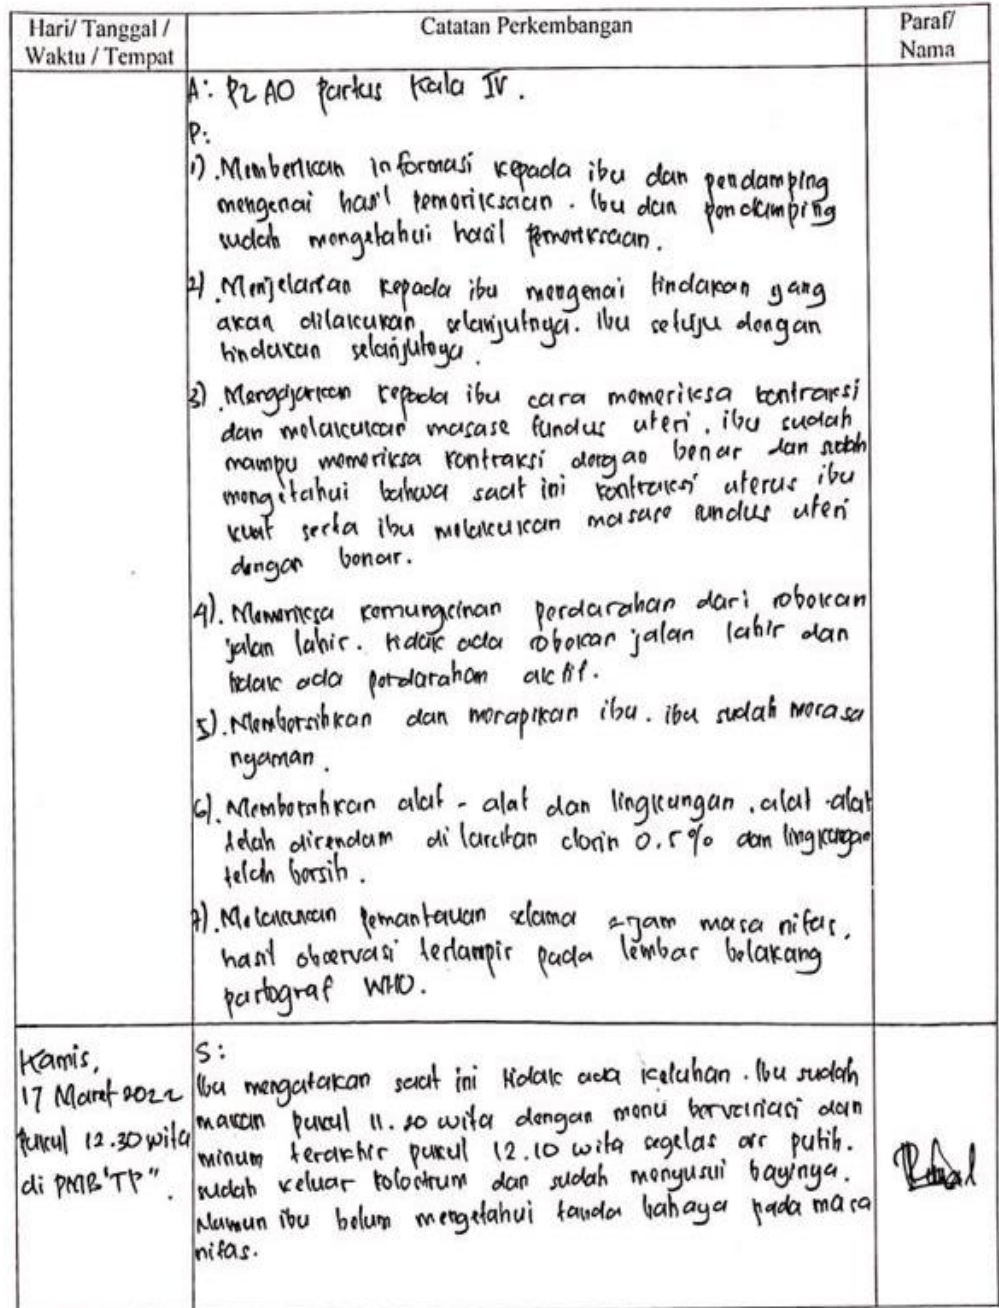 Hari/ Tanggal /
Waktu / Tempat
Catatan Perkembangan
Paraf/
Nama
A: P2 A0 partus Kala IV.
P:
1). Memberikan informasi kepada ibu dan pendamping
mengenai hasil pemeriksaan. Ibu dan pendamping
sudah mengetahui hasil pemeriksaan.
2). Menjelaskan kepada ibu mengenai tindakan yang
akan dilakukan selanjutnya. Ibu setuju dengan
tindakan selanjutnya.
3). Mengajarkan kepada ibu cara memeriksa kontraksi
dan melakukan masase fundus uteri. ibu sudah
mampu memeriksa kontraksi dengan benar dan sudah
mengetahui bahwa saat ini kontraksi uterus ibu
kuat serta ibu melakukan masase fundus uteri
dengan benar.
4). Memeriksa kemungkinan perdarahan dari robekan
jalan lahir. tidak ada robekan jalan lahir dan
tidak ada perdarahan aktif.
5). Membersihkan dan merapikan ibu. ibu sudah merasa
nyaman.
6). Membersihkan alat - alat dan lingkungan. alat-alat
telah direndam di larutan clorin 0.5% dan lingkungan
telah bersih.
7). Melakukan pemantauan selama 2 jam masa nifas,
hasil observasi terlampir pada lembar belakang
partograf WHO.
Kamis,
17 Maret 2022
pukul 12.30 wita
di PMB "TP".
S:
Ibu mengatakan saat ini tidak ada keluhan. Ibu sudah
makan pukul 11.20 wita dengan menu bervariasi dan
minum terakhir pukul 12.10 wita segelas air putih.
sudah keluar kolostrum dan sudah menyusui bayinya.
Namun ibu belum mengetahui tanda bahaya pada masa
nifas.